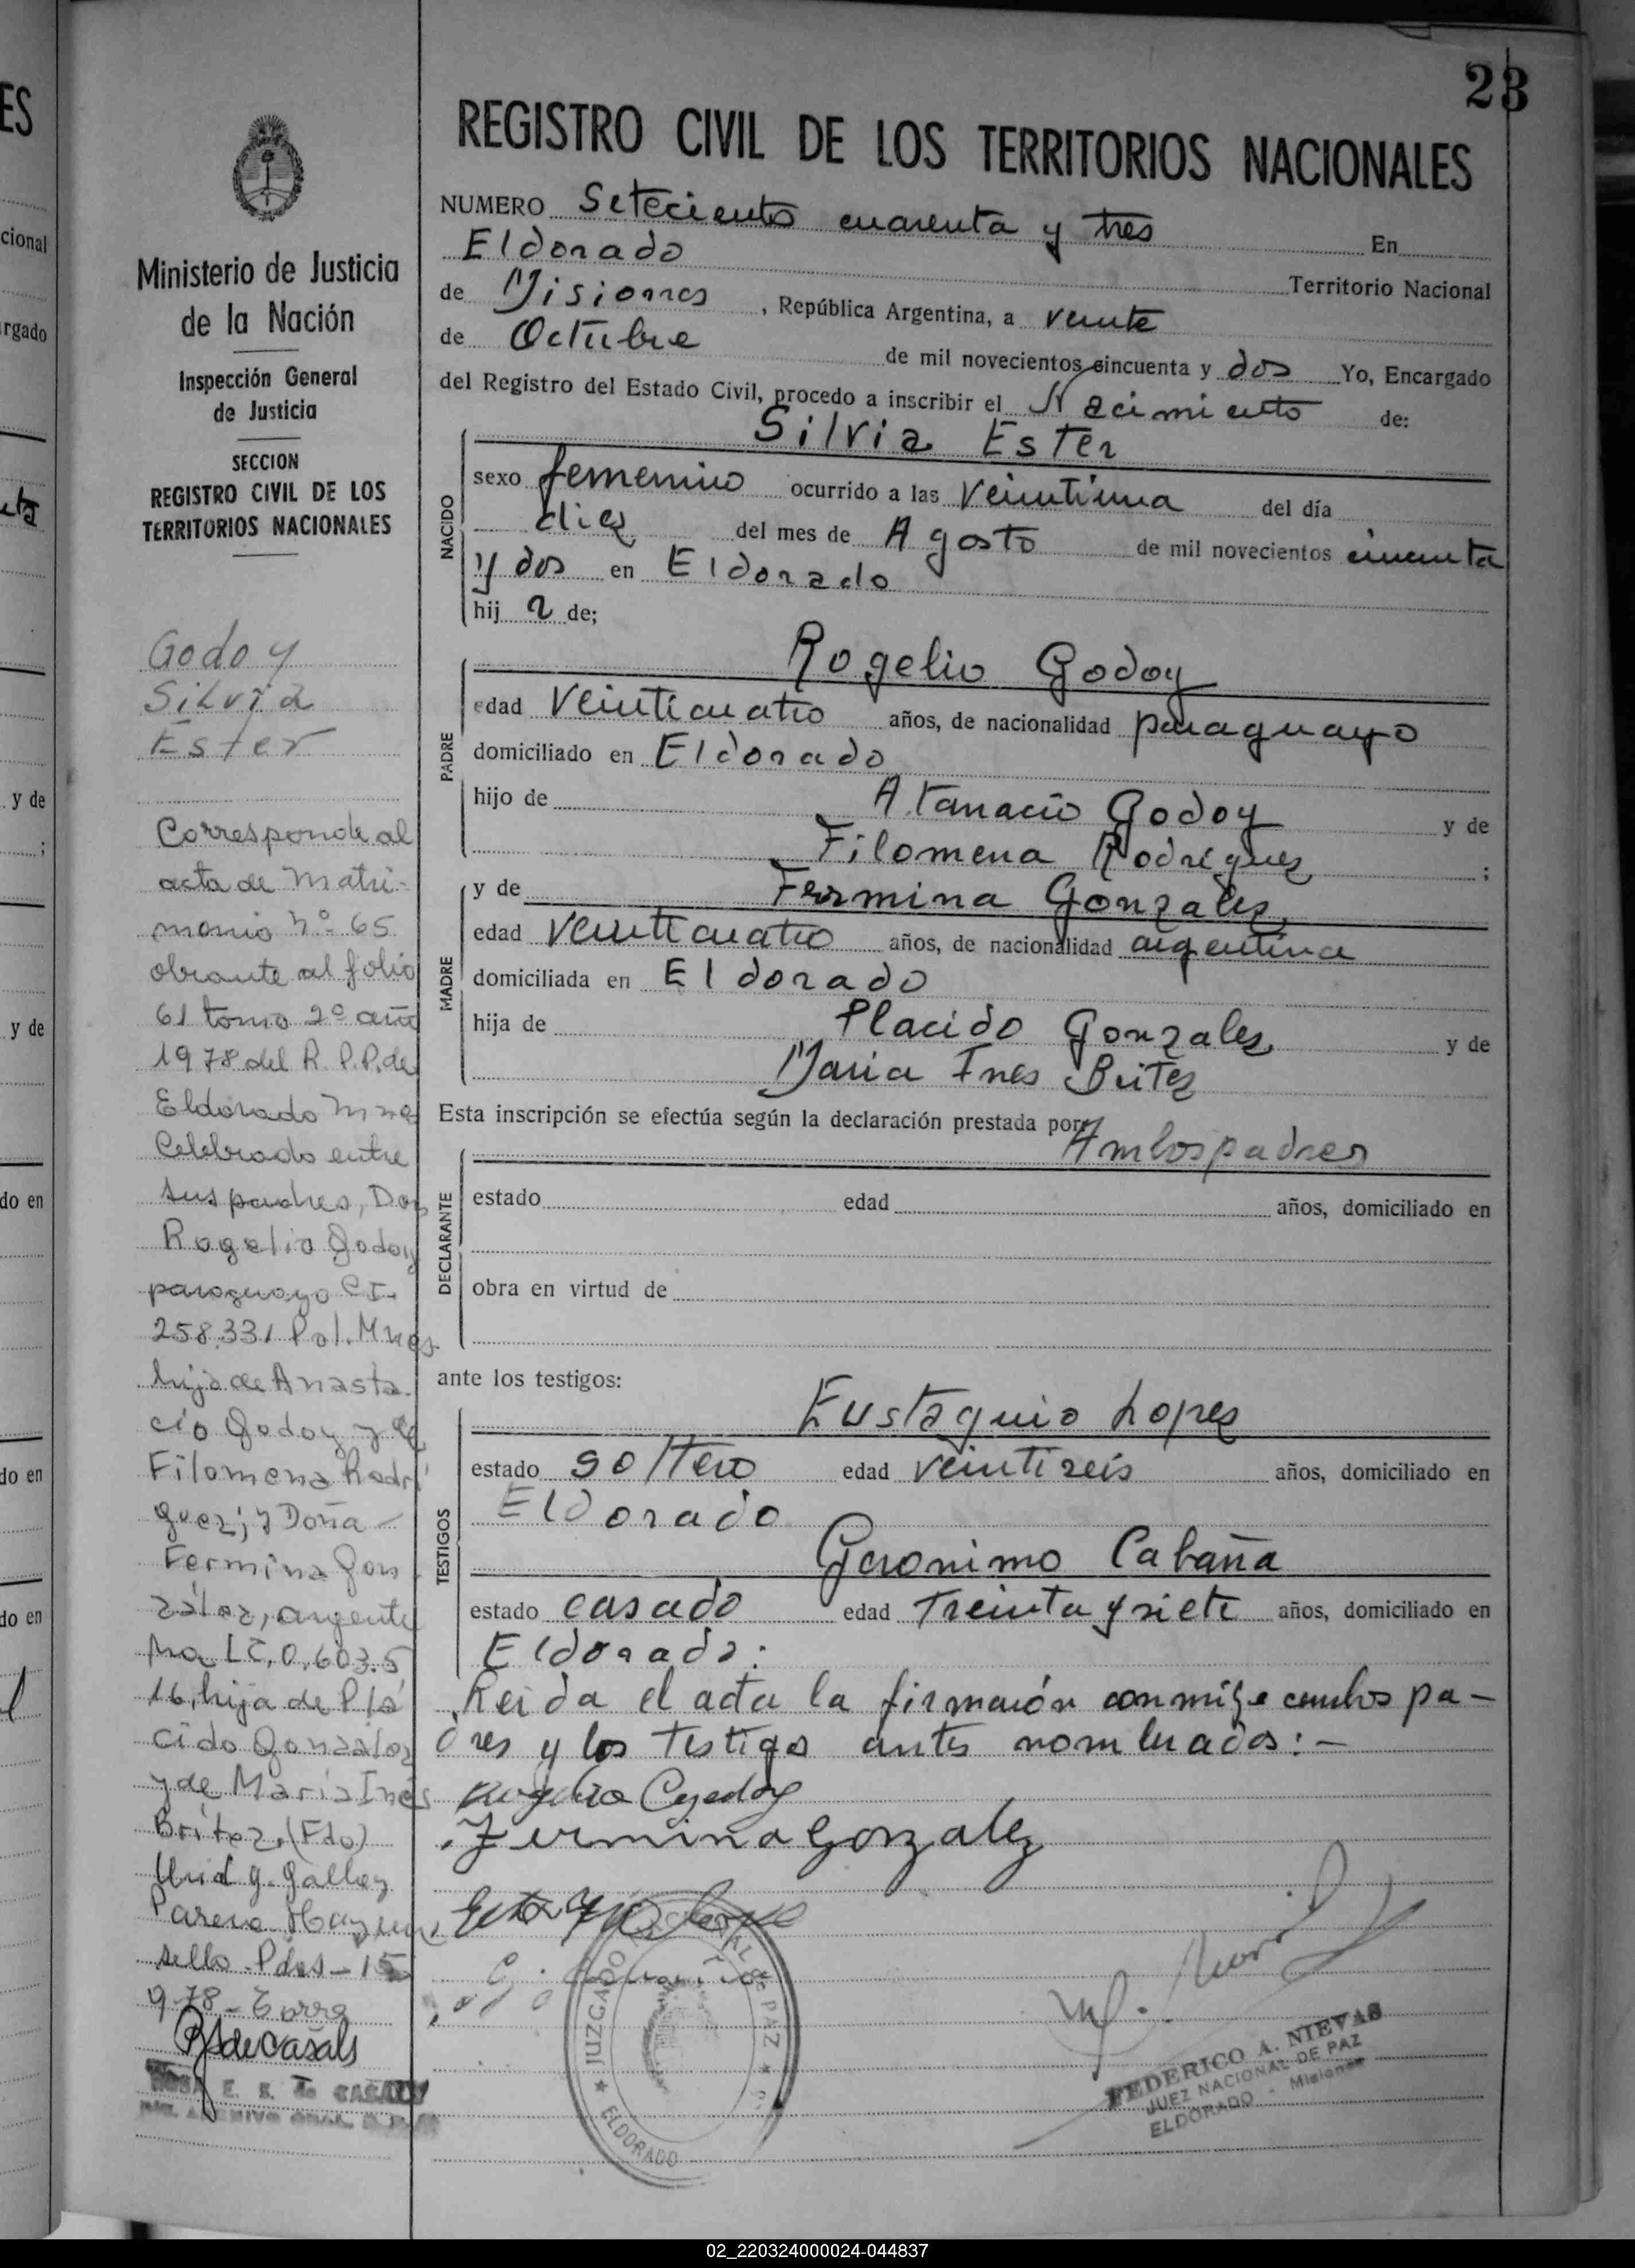 23
REGISTRO CIVIL DE LOS TERRITORIOS NACIONALES
NUMERO Seteciento cuarenta y tres En
Eldorado Territorio Nacional
de Misiones, República Argentina, a veinte
de Octubre de mil novecientos cincuenta y dos Yo, Encargado
del Registro del Estado Civil, procedo a inscribir el Nacimiento de:
Silvia Ester
NACIDO
sexo femenino ocurrido a las veintiuna del día
diez del mes de Agosto de mil novecientos cincuenta
y dos en Eldorado
hij a de;
Rogelio Godoy
PADRE
edad veinticuatro años, de nacionalidad paraguayo
domiciliado en Eldorado
hijo de Atanacio Godoy y de
Filomena Rodriguez ;
y de Fermina Gonzalez
MADRE
edad veinticuatro años, de nacionalidad argentina
domiciliada en Eldorado
hija de Placido Gonzalez y de
Maria Ines Britez
Esta inscripción se efectúa según la declaración prestada por: Ambos padres
DECLARANTE
estado edad años, domiciliado en
obra en virtud de
ante los testigos:
Eustaquio Lopez
TESTIGOS
estado soltero edad veintiseis años, domiciliado en
Eldorado
Geronimo Cabaña
estado casado edad treinta y siete años, domiciliado en
Eldorado:
Leida el acta la firmarón conmigo ambos pa-
dres y los testigos antes nombrados:-
Rogelio Godoy
Fermina Gonzalez
JUZGADO NACIONAL de PAZ
ELDORADO
FEDERICO A. NIEVAS
JUEZ NACIONAL DE PAZ
ELDORADO - Misiones
Ministerio de Justicia
de la Nación
Inspección General
de Justicia
SECCION
REGISTRO CIVIL DE LOS
TERRITORIOS NACIONALES
Godoy
Silvia
Ester
Corresponde al
acta de Matri-
monio nº 65
obrante al folio
61 tomo 2º año
1978 del R. P. P. de
Eldorado Mnes
Celebrado entre
sus padres, Don
Rogelio Godoy
paraguayo C.I.
258.331 Pol. Mnes.
hijo de Anasta-
cio Godoy y de
Filomena Rodrí
guez; y Doña
Fermina Gon
zález, argenti
na LC. 0.603.5
16, hija de Plá
cido Gonzalez
y de María Inés
Britez, (Fdo)
sello - Pdas - 15
9-78 -
RSdeCasals
ROSA E. S. de CASALS
cional
rgado
y de
y de
do en
do en
do en
02_220324000024-044837